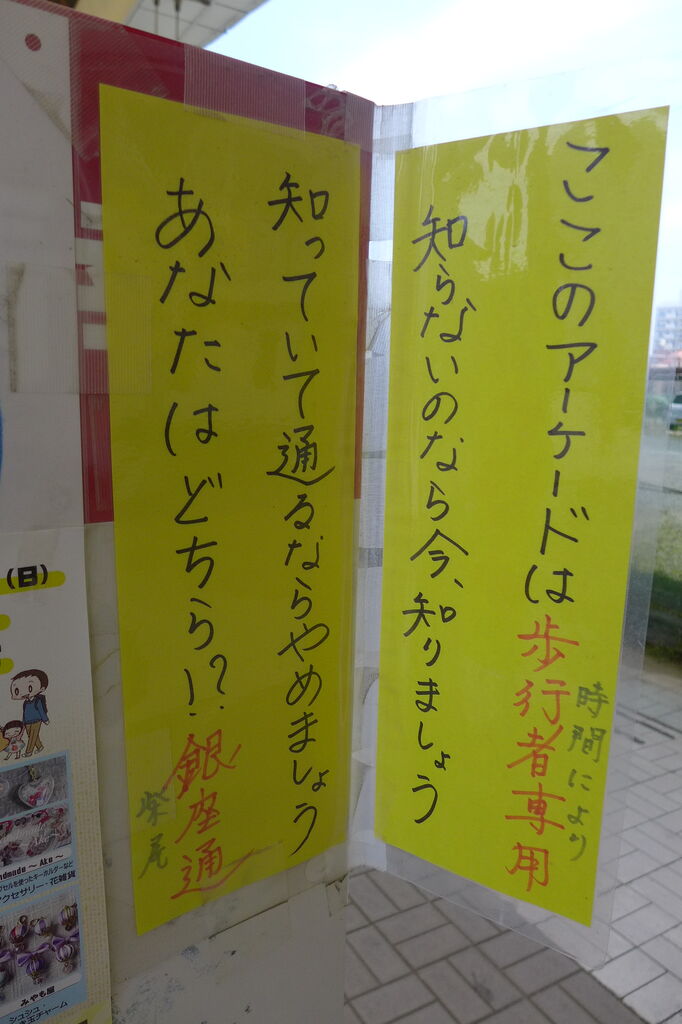 ここのアーケードは歩行者専用
時間により
知らないのなら今、知りましょう
知っていて通るならやめましょう
あなたはどちら!? 銀座通
柴尾
(日)
ndmade ～ Ake ～
クセサリー・花雑貨
みやも屋
シュシュ・